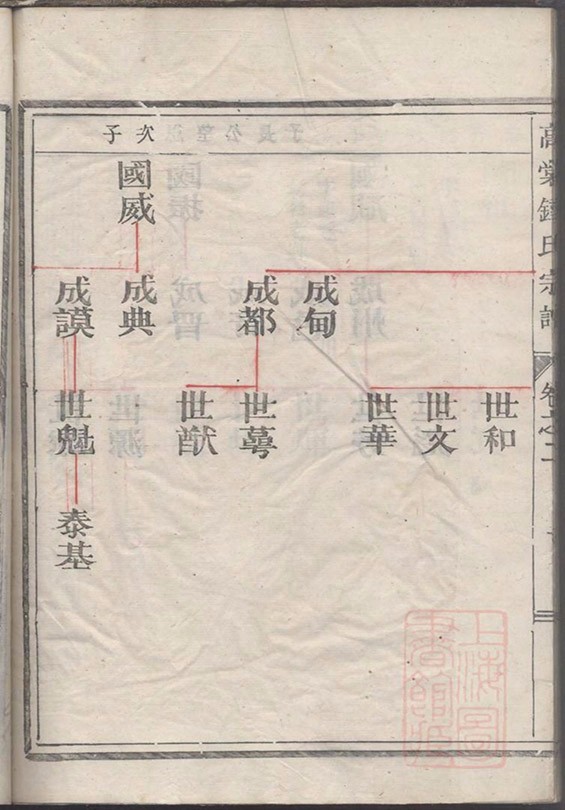 高崇鍾氏宗譜
卷之二
次子
國威
成甸
成都
成典
成謨
世和
世文
世華
世蕚
世猷
世魁
泰基
上海圖書館藏